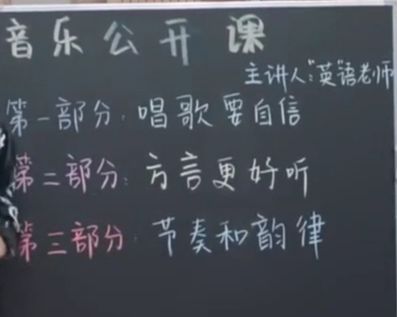 音乐公开课
主讲人:"英"语老师
第一部分:唱歌要自信
第二部分:方言更好听
第三部分:节奏和韵律